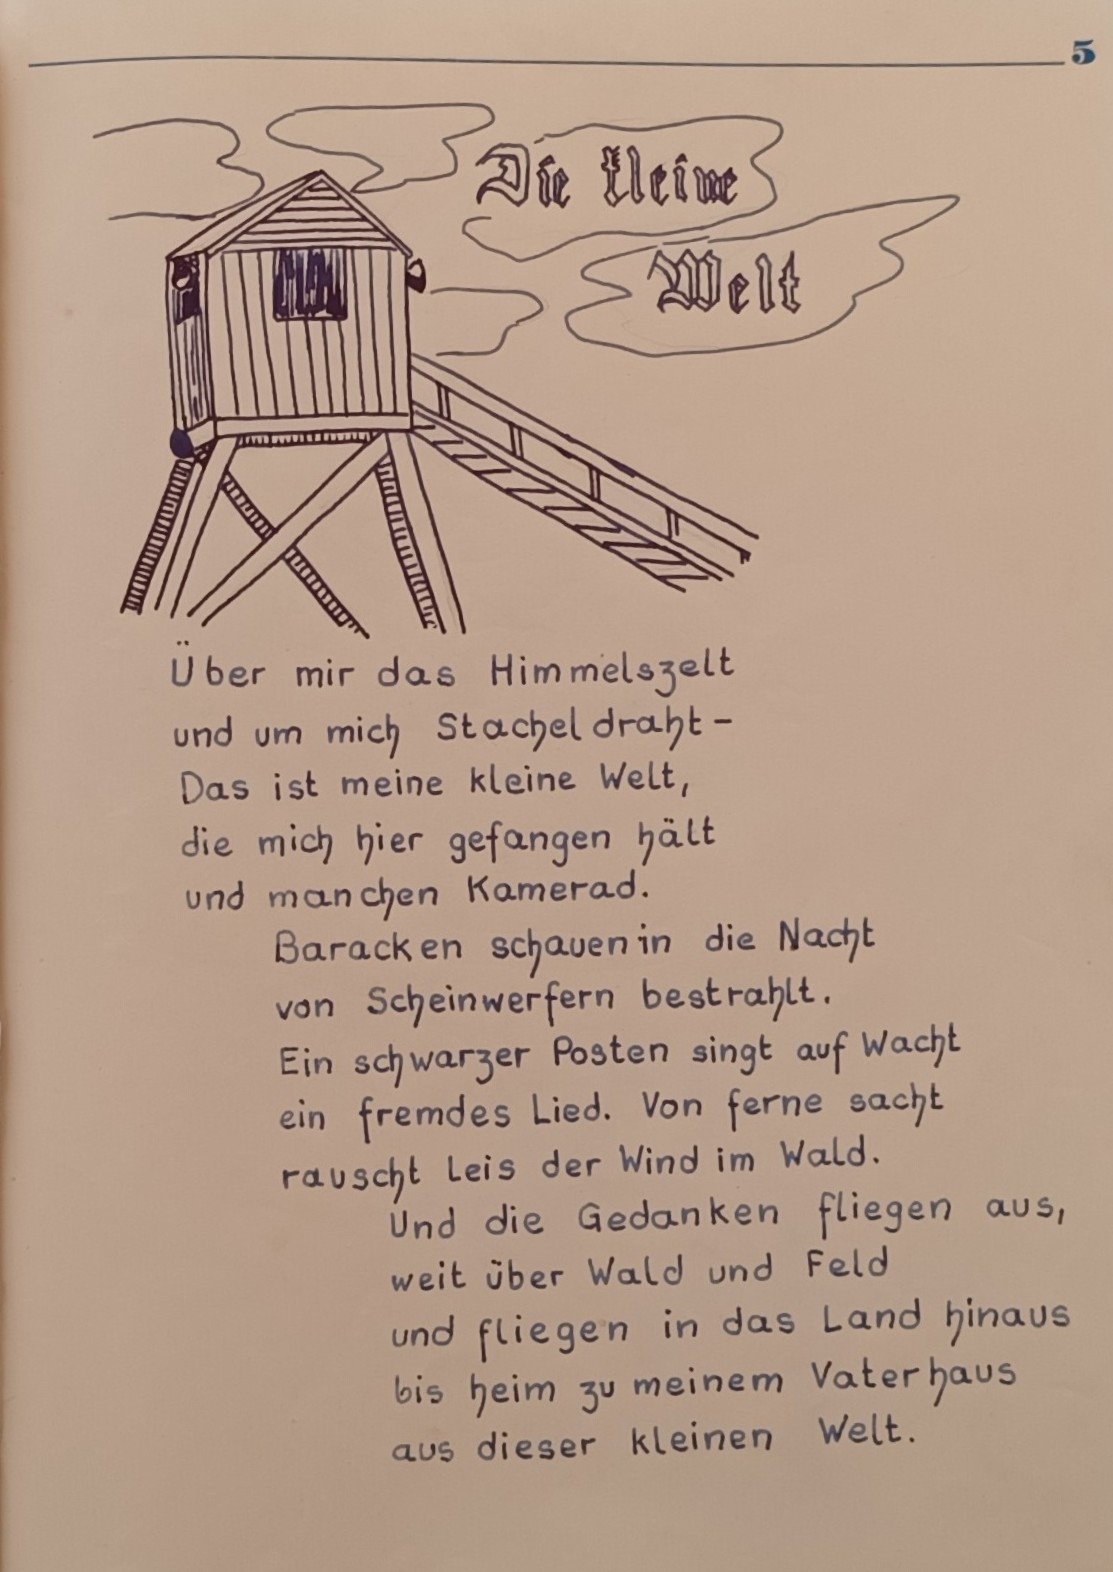 5
Die kleine
Welt
Über mir das Himmelszelt
und um mich Stacheldraht –
Das ist meine kleine Welt,
die mich hier gefangen hält
und manchen Kamerad.
Baracken schauen in die Nacht
von Scheinwerfern bestrahlt.
Ein schwarzer Posten singt auf Wacht
ein fremdes Lied. Von ferne sacht
rauscht leis der Wind im Wald.
Und die Gedanken fliegen aus,
weit über Wald und Feld
und fliegen in das Land hinaus
bis heim zu meinem Vaterhaus
aus dieser kleinen Welt.